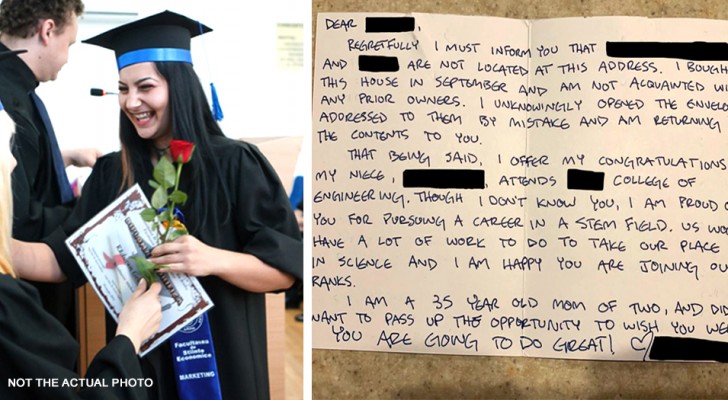 NOT THE ACTUAL PHOTO
Facultatea
de
Stiinte
Economice
MARKETING
DEAR
REGRETFULLY I MUST INFORM YOU THAT
AND ARE NOT LOCATED AT THIS ADDRESS. I BOUGH
THIS HOUSE IN SEPTEMBER AND AM NOT ACQUAINTED WI
ANY PRIOR OWNERS. I UNKNOWINGLY OPENED THE ENVELO
ADDRESSED TO THEM BY MISTAKE AND AM RETURNING
THE CONTENTS TO YOU.
THAT BEING SAID, I OFFER MY CONGRATULATIONS
MY NIECE, , ATTENDS COLLEGE OF
ENGINEERING. THOUGH I DON'T KNOW YOU, I AM PROUD O
YOU FOR PURSUING A CAREER IN A STEM FIELD. US WO
HAVE A LOT OF WORK TO DO TO TAKE OUR PLACE
IN SCIENCE AND I AM HAPPY YOU ARE JOINING OU
RANKS.
I AM A 35 YEAR OLD MOM OF TWO, AND DID
WANT TO PASS UP THE OPPORTUNITY TO WISH YOU WE
YOU ARE GOING TO DO GREAT! ♡